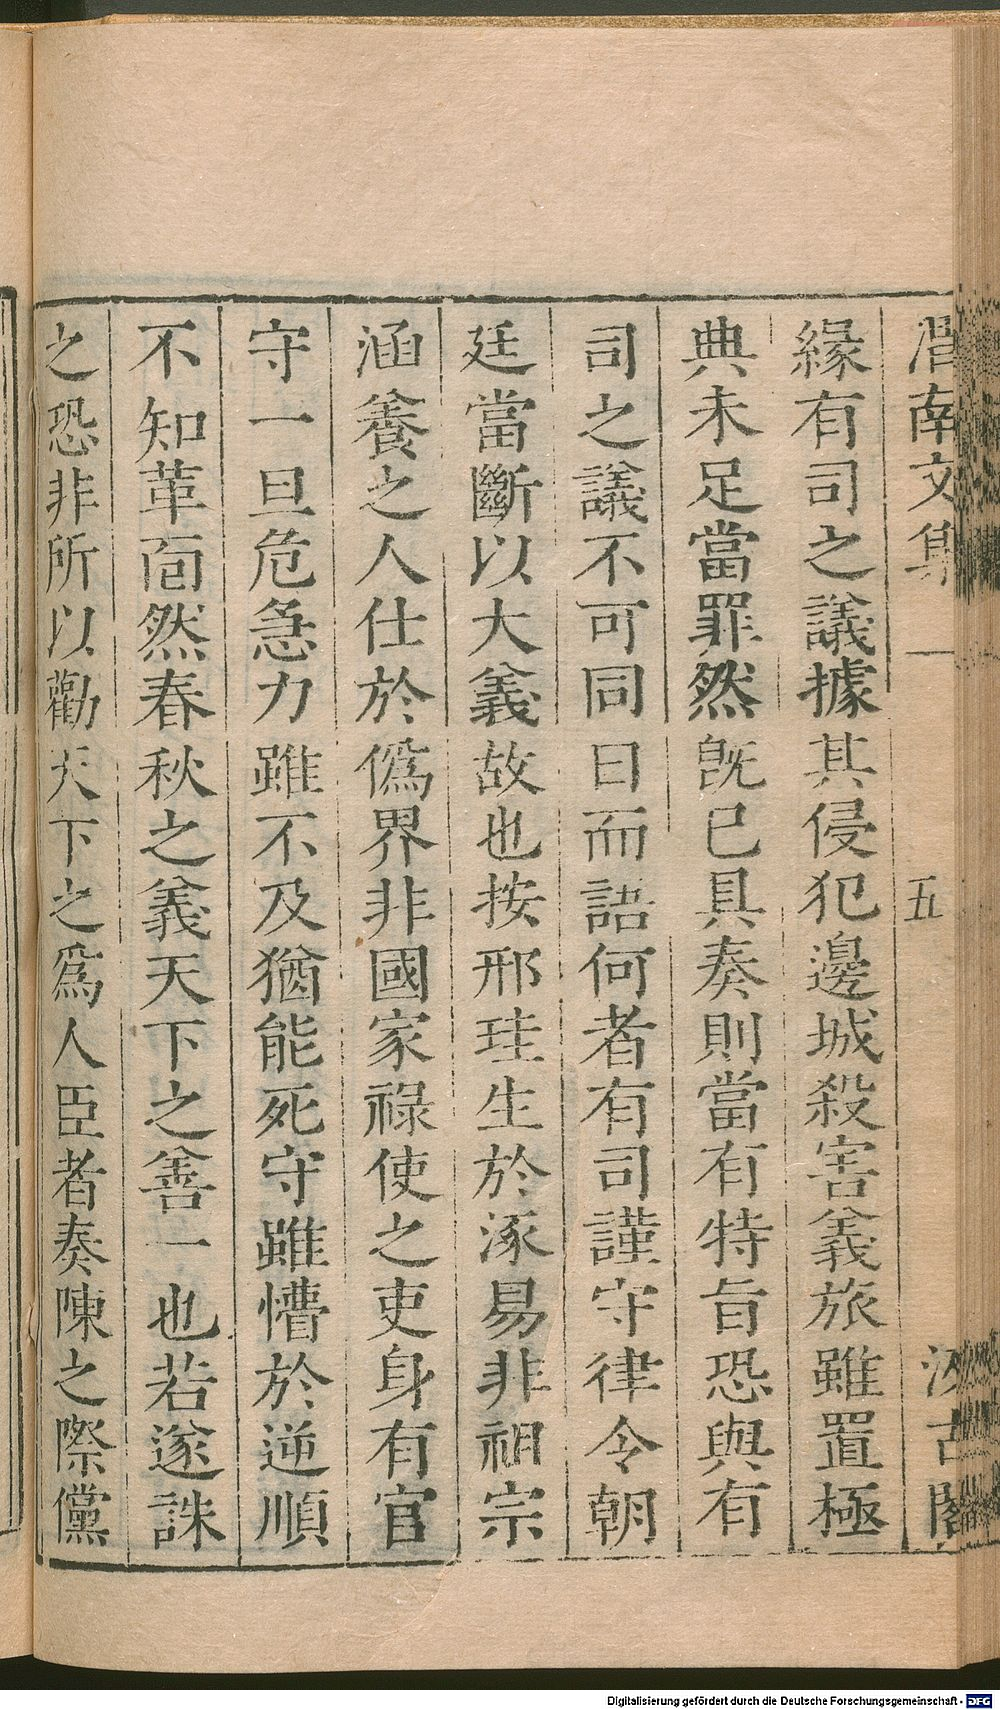 渭南文集 一 五 汲古閣
緣有司之議據其侵犯邊城殺害義旅雖置極
典未足當罪然旣已具奏則當有特旨恐與有
司之議不可同日而語何者有司謹守律令朝
廷當斷以大義故也按邢珪生於涿易非祖宗
涵養之人仕於僞界非國家祿使之吏身有官
守一旦危急力雖不及猶能死守雖懵於逆順
不知革面然春秋之義天下之善一也若遂誅
之恐非所以勸天下之爲人臣者奏陳之際儻
Digitalisierung gefördert durch die Deutsche Forschungsgemeinschaft - DFG